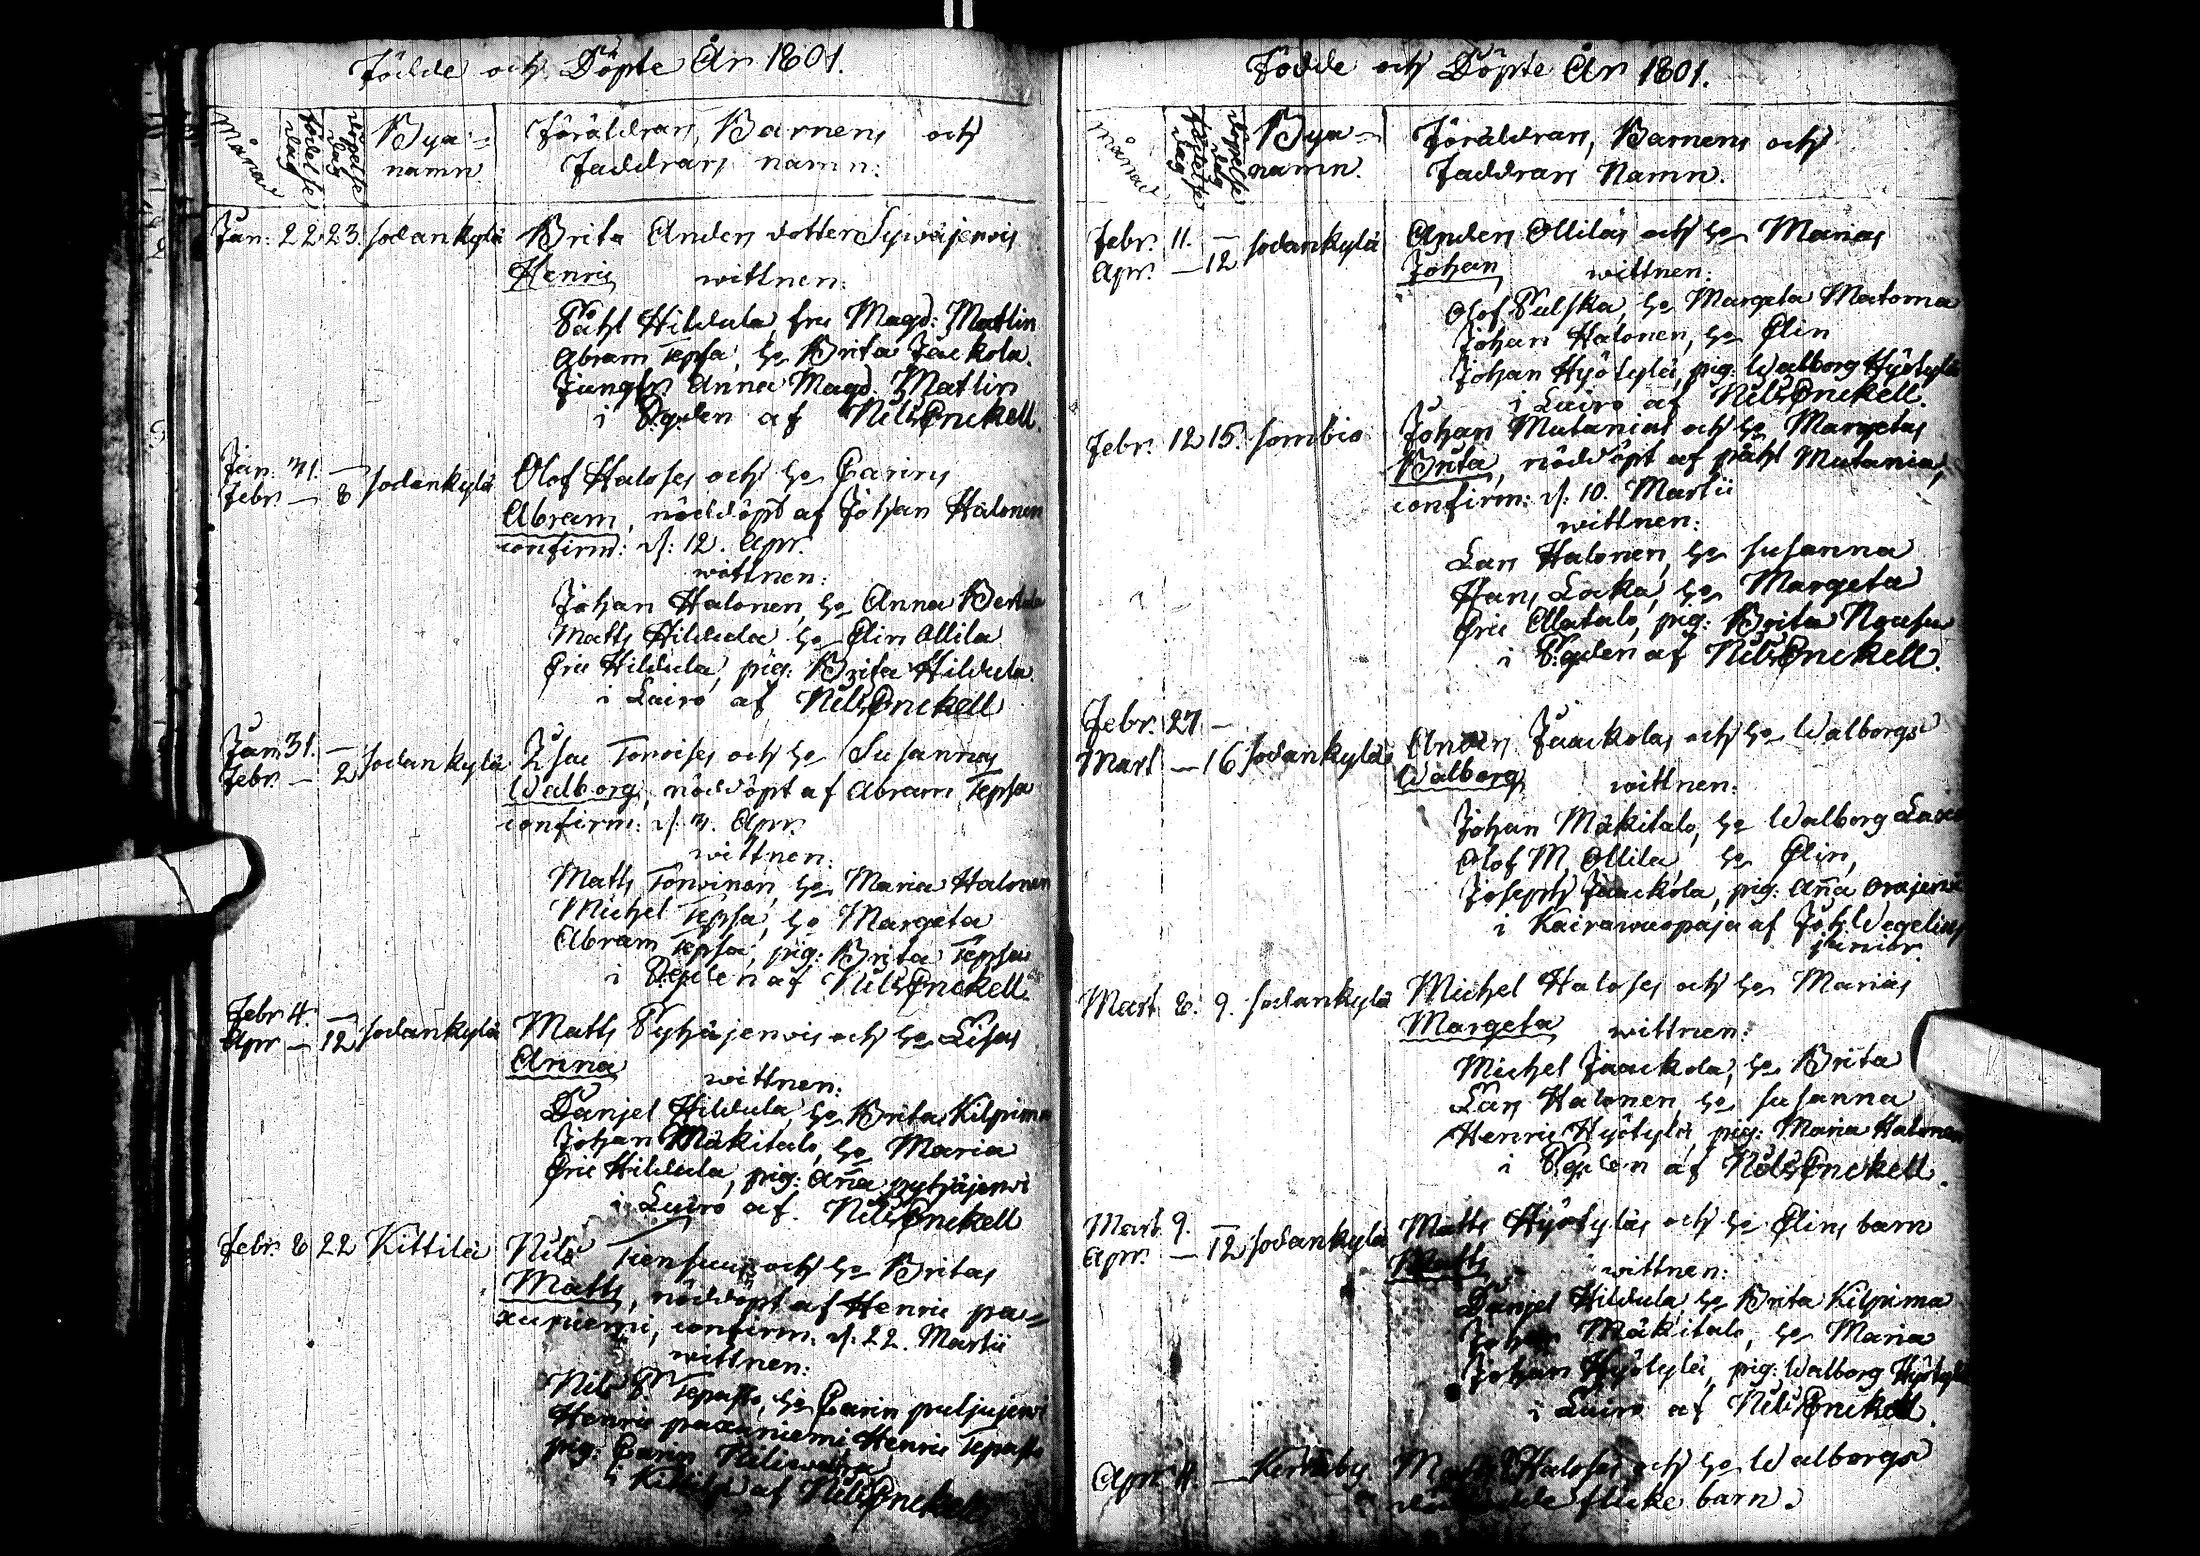 Födde och Döpte År 1801.
Månad
födelse dag
döpelse dag
Bya=
namn
Föräldrars, Barnens och
Faddrars namn:
Jan: 22 23. Sodankylä Brita Anders dotter Sywäjerwis
Henric wittnen:
Påhl Hildula, fru Magd: Matlin
Abram Tepsa, h:o Brita Jaakola.
Jungfr. Anna Magd. Matlin
i af Nils Enckell.
Jan: 31. —
Febr. — 8 Sodankylä
Olof Haloses och h:o Carins
Abram, nöddöpt af Johan Halonen
confirm: d: 12. Apr.
wittnen:
Johan Halonen, h:o Anna
Matts Hildula h:o Elin Ollila
Eric Hildula, pig: Brita Hildula.
i Luiro af Nils Enckell
Jan 31. —
Febr. — 2 Sodankylä
Isac Torvises och h:o Susannas
Walborg, nöddöpt af Abram Tepsa
confirm: d: 3. Apr.
wittnen:
Matts Torvinen, h:o Maria Halonen
Michel Tepsa, h:o Margeta
Abram Tepsa, pig: Brita Tepsa
i af Nils Enckell.
Febr 4. —
Apr — 12 Sodankylä
Matts Pyhäjerwis och h:o Lisas
Anna
wittnen:
Danjel Hildula, h:o Brita Kilprima
Johan Mäkitalo, h:o Maria
Eric Hildula, pig: Aña pyhäjerwi
i Luiro af. Nils Enckell
Febr. 8 22 Kittilä
Nils och h:o Britas
Matts, nöddöpt af Henric pa=
xuniemi, confirm. d: 22. Martii
wittnen:
Nils Tepasto, h:o Carin puljujerwi
Henric paxuniemi, Henric Tepasto
pig: Carin Niliwaara
i Kittilä af Nils Enckell
Födde och Döpte År 1801.
Månad
födelse dag
döpelse dag
Bya=
namn.
Föräldrars, Barnens och
Faddrars Namn.
Febr. 11. —
Apr. — 12 Sodankylä
Anders Ollilas och h:o Marias
Johan wittnen:
Olof Pulska, h:o Margeta Matoma
Johan Halonen, h:o Elin
Johan Hyötylä, pig: Walborg Hyötylä
i Luiro af Nils Enckell.
Febr. 12 15. Sombio
Johan Mutanias och h:o Margetas
Brita, nöddöpt af påhl Mutania,
confirm: d: 10. Martii
wittnen:
Lars Halonen, h:o Susanna
Hans Locka, h:o Margeta
Eric Alatalo, pig: Brita
i af Nils Enckell.
Febr. 27 —
Mart — 16 Sodankylä
Anders Jaackolas och h:o Walborgs
Walborg wittnen:
Johan Mäkitalo, h:o Walborg
Olof M Ollila h:o Elin,
Joseph Jaackola, pig: Aña Orajerwi
i Kairawuopaja af Joh Wegelius
junior.
Mart 8. 9. Sodankylä
Michel Haloses och h:o Marias
Margeta wittnen:
Michel Jaackola, h:o Brita
Lars Halonen, h:o Susanna
Henric Hyötylä, pig: Maria Halonen
i af Nils Enckell.
Mart 9. —
Apr. — 12 Sodankylä
Matts Hyötyläs och h:o Elins barn
Matts wittnen:
Danjel Hildula h:o Brita Kilprima
Johan Mäkitalo, h:o Maria
Johan Hyötylä, pig: Walborg Hyötylä
i Luiro af Nils Enckell.
Apr 4. — Haloses och h:o Walborgs
flicke barn.